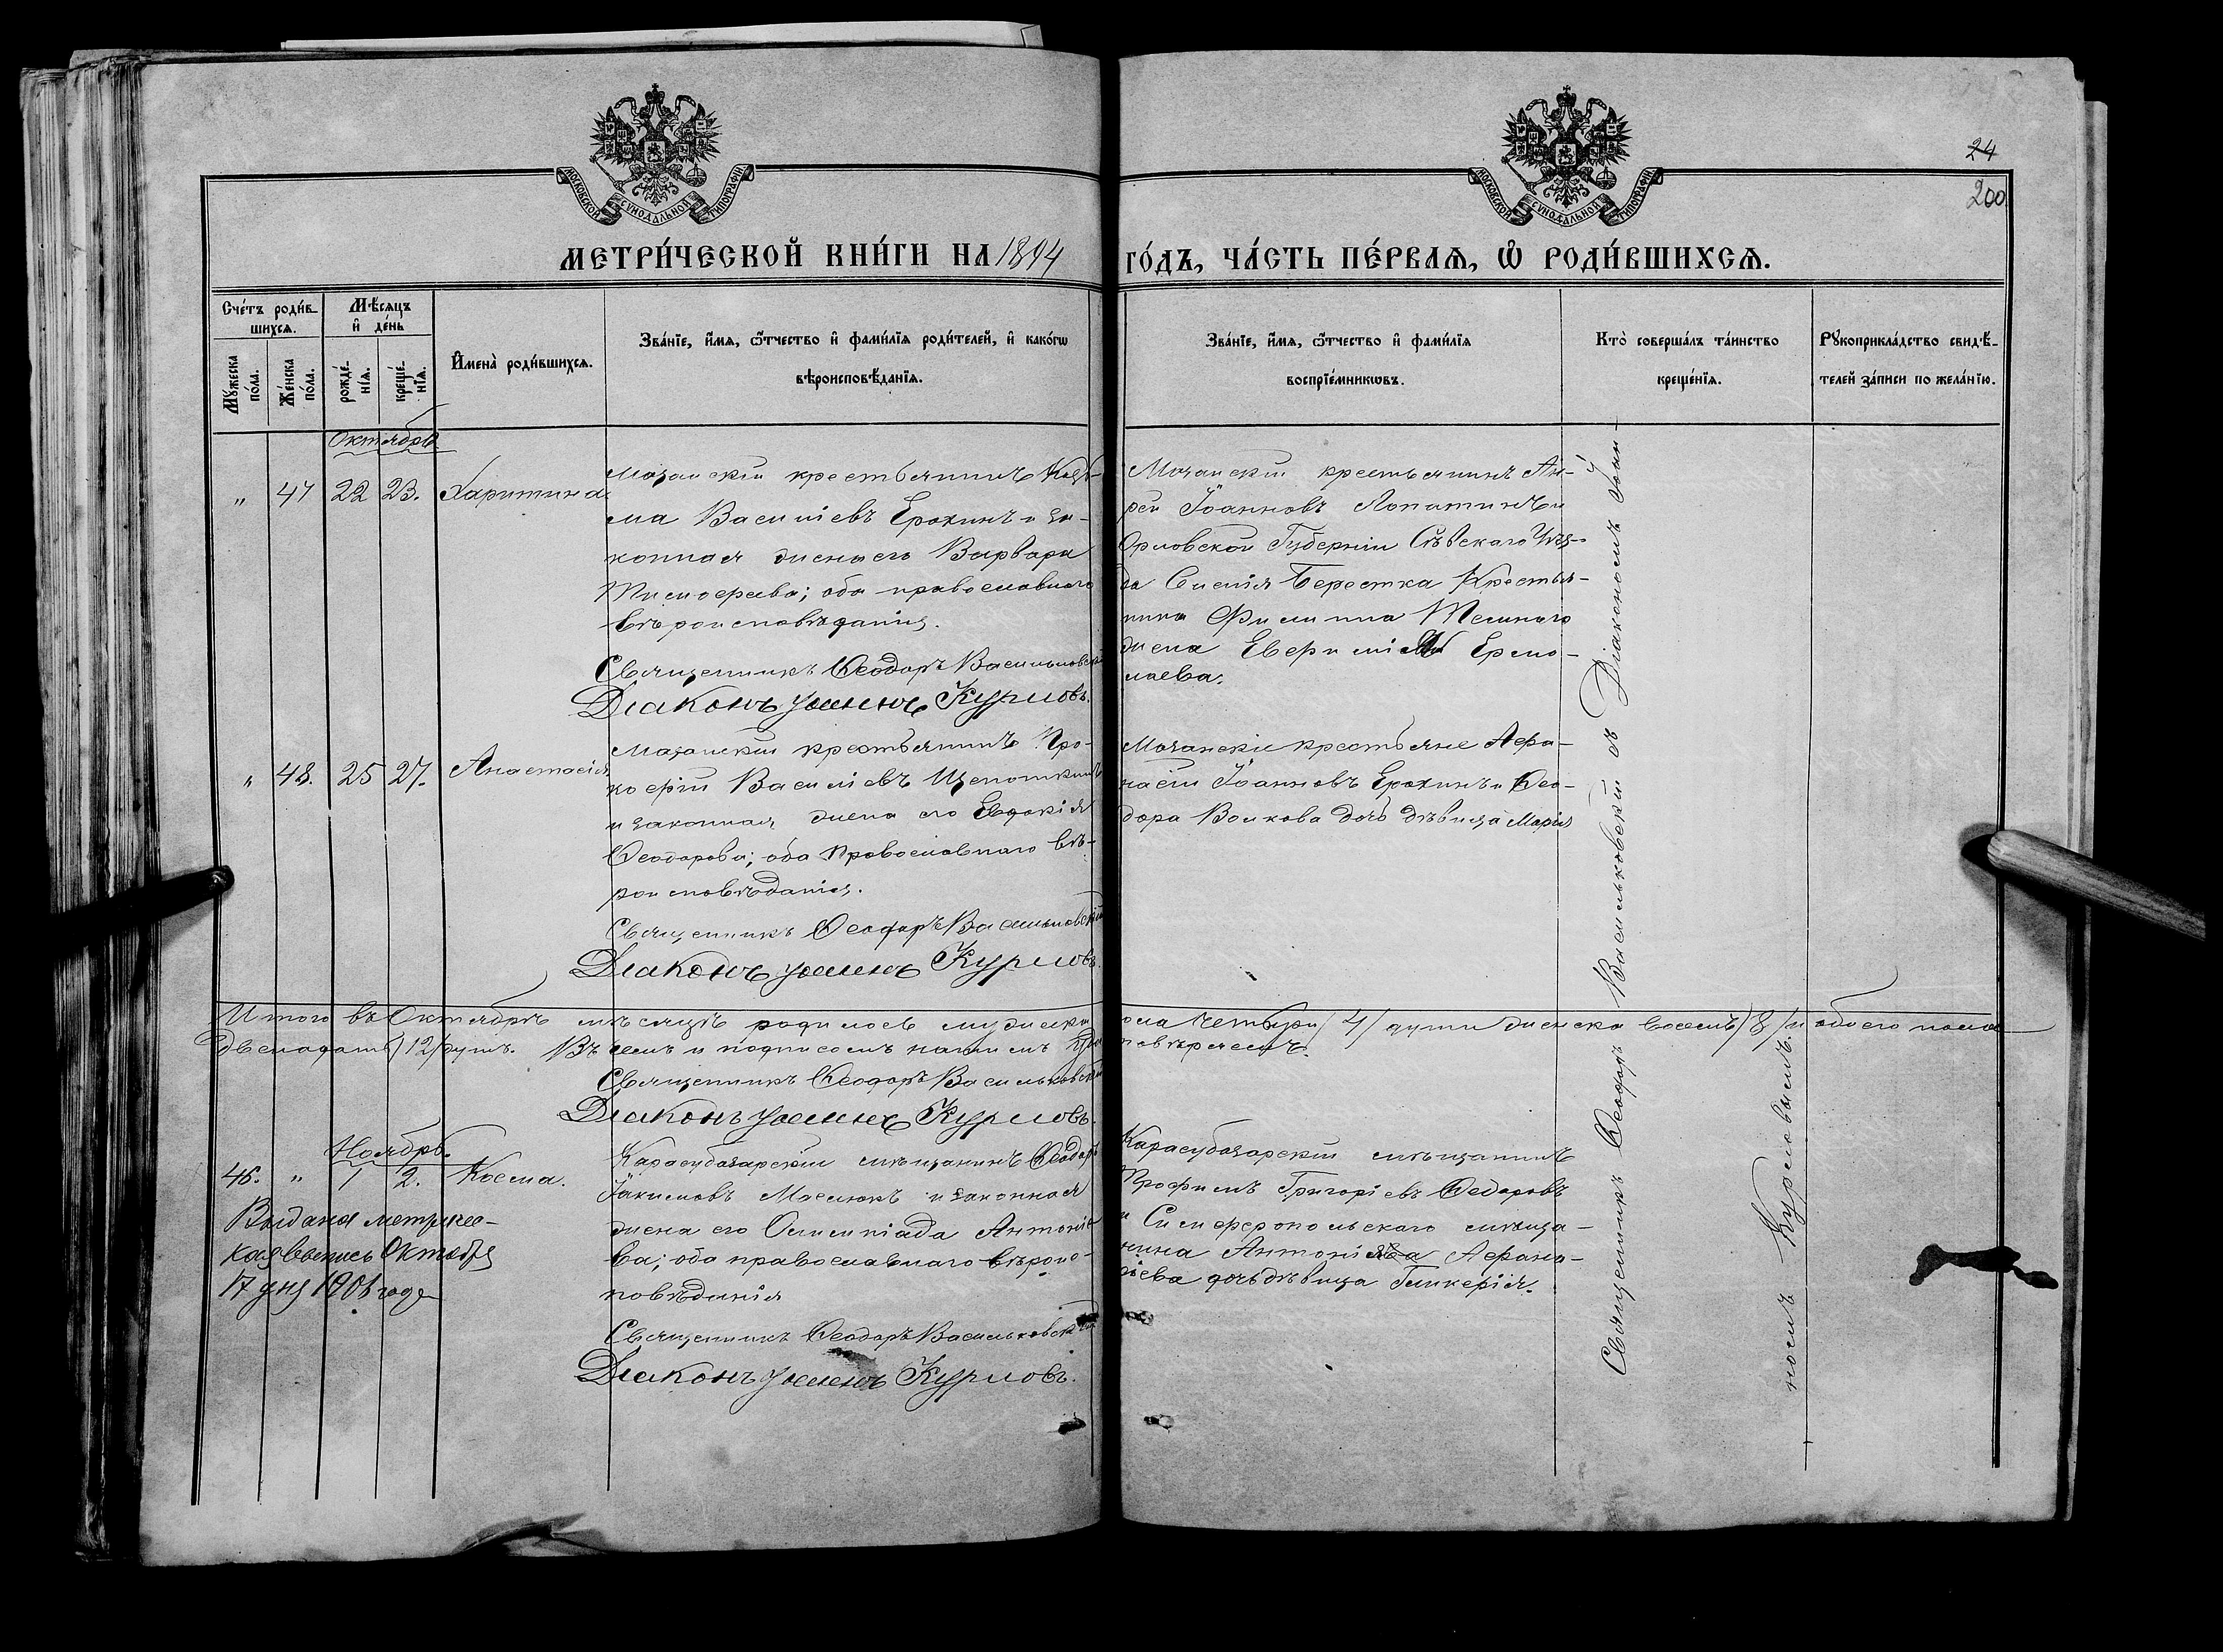 МОСКОВСКОЙ СѴНОДАЛЬНОЙ ТИПОГРАФІИ
МОСКОВСКОЙ СѴНОДАЛЬНОЙ ТИПОГРАФІИ
24
200
МЕТРИ́ЧЕСКОЙ КНИ́ГИ НА 1894
ГО́ДЪ, ЧА́СТЬ ПЕ́РВАѦ, Ѡ҆ РОДИ́ВШИХСѦ.
Сче́тъ роди́в-
шихсѧ.
Мѣ́сѧцъ
и҆ де́нь
Мꙋ́жеска
по́ла.
Же́нска
по́ла.
рожде́-
нїѧ.
креще́-
нїѧ.
И҆мена̀ роди́вшихсѧ.
Зва́нїе, и҆́мѧ, ѻ҆́тчество и҆ фами́лїѧ роди́телей, и҆ како́гѡ
вѣроисповѣ́данїѧ.
Зва́нїе, и҆́мѧ, ѻ҆́тчество и҆ фами́лїѧ
воспрїе́мникѡвъ.
Кто̀ соверша́лъ та́инство
креще́нїѧ.
Рꙋкоприкла́дство свидѣ́-
телей за́писи по жела́нїю.
Октябрь
" 47 22 23. Харитина
Мазанскій крестьянинъ Козь-
ма Василіевъ Ерохинъ и за-
конная жена его Варвара
Тимофеева; оба православнаго
вѣроисповѣданія.
Священникъ Ѳеодоръ Васильковскій
Діаконъ Іоаннъ Курловъ.
Мазанскій крестьянинъ Ан-
рей Іоанновъ Лопатинъ и
Орловской Губерніи Сѣвскаго Уѣз-
да Берестка Крестья-
нина Филиппа Темнаго
жена Евфимія Ермо-
лаева.
" 48. 25 27. Анастасія
Мазанскій крестьянинъ Про-
кофій Василіевъ Щепоткинъ
и законная жена его Евдокія
Ѳеодорова; оба Православнаго вѣ-
роисповѣданія.
Священникъ Ѳеодоръ Васильковскій
Діаконъ Іоаннъ Курловъ.
Мазанскіе крестьяне Афа-
насій Іоанновъ Ерохинъ и Ѳео-
дора Волкова дочь дѣвица Марія
Итого въ Октябрѣ мѣсяцѣ родилось мужска пола четыри /4/ души женска восемь /8/ и обоего пола
двенадцать /12/ душъ. Въ чемъ и подписомъ нашимъ
Священникъ Ѳеодоръ Васильковскій
Діаконъ Іоаннъ Курловъ.
Ноябрь.
46. " 1 2. Косма.
Выдана метричес-
кая выпись Октября
17 дня 1901 года
Карасубазарскій мѣщанинъ Ѳеодоръ
Іакимовъ Маслюкъ и законная
жена его Олимпіада Антоніе-
ва; оба православнаго вѣроис-
повѣданія
Священникъ Ѳеодоръ Васильковскій
Діаконъ Іоаннъ Курловъ.
Карасубазарскій мѣщанинъ
Трофимъ Григоріевъ Ѳедоровъ
и Симферопольскаго мѣща-
нина Антонія Афана-
сіева дочь дѣвица Гликерія.
Священникъ Ѳеодоръ Васильковскій съ Діакономъ Іоан-
номъ Курловымъ.